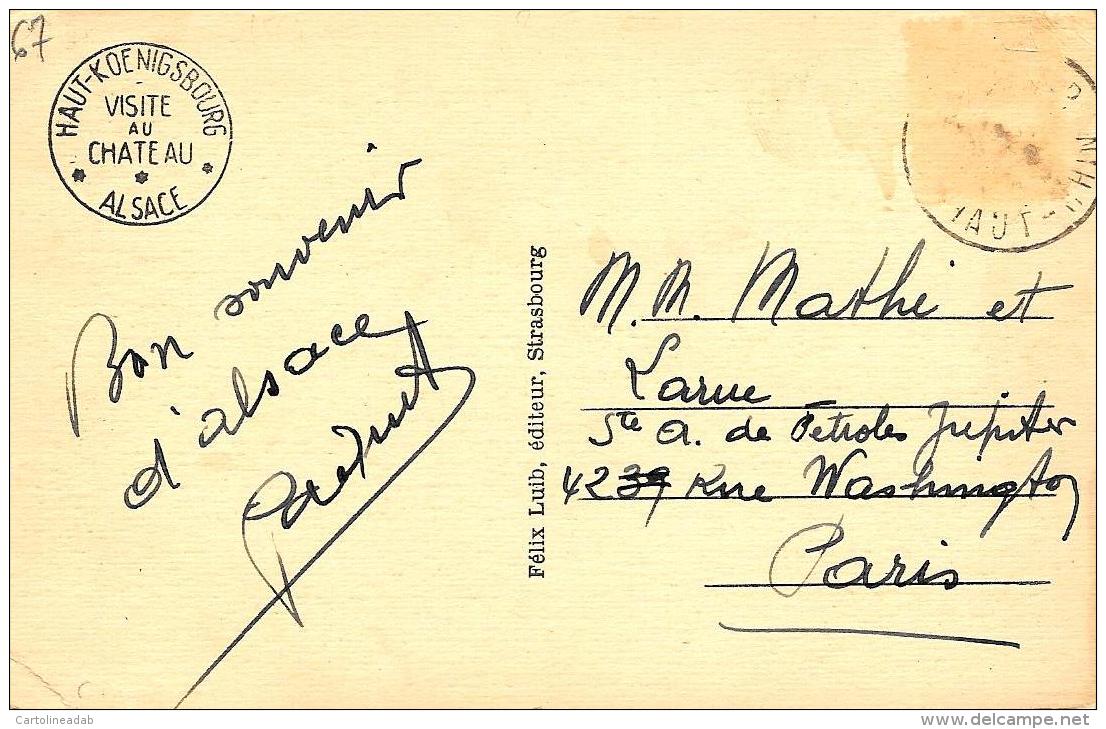 67
HAUT-KOENIGSBOURG
VISITE
AU
CHATEAU
ALSACE
HAUT-RHIN
Bon souvenir
d'alsace
Félix Luib, éditeur, Strasbourg
M.M. Mathé et
Larue
Sté a. de Pétroles Jupiter
42 39 Rue Washington
Paris
Cartolineadab
www.delcampe.net